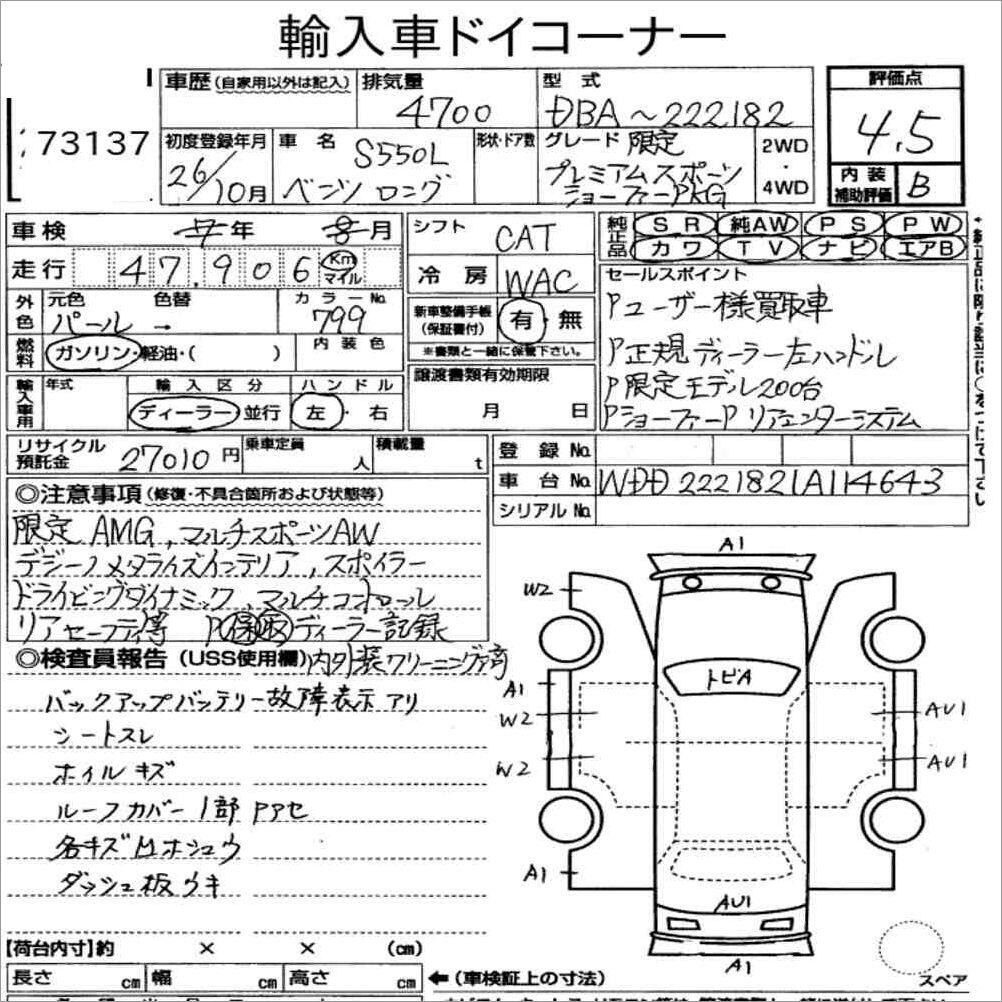 輸入車ドイコーナー
73137
車歴(自家用以外は記入)
排気量
4700
型式
DBA~222182
評価点
4.5
内装補助評価
B
初度登録年月
26/10月
車名
S550L
ベンツ ロング
形状・ドア数
グレード 限定
プレミアムスポーツ
ショーファーPKG
2WD
4WD
車検 7年 8月
走行 47,906 Km マイル
シフト
CAT
冷房
WAC
純正品
SR 純AW PS PW
カワ TV ナビ エアB
セールスポイント
Pユーザー様買取車
P正規ディーラー左ハンドル
P限定モデル200台
PショーファーP リアエンターシステム
外色
元色 色替
パール →
カラーNo.
799
内装色
燃料
ガソリン・軽油・( )
新車整備手帳(保証書付)
有・無
※書類と一緒に保管下さい。
輸入車用
年式
輸入区分
ディーラー 並行
ハンドル
左・右
譲渡書類有効期限
月 日
リサイクル預託金
27010円
乗車定員
人
積載量
t
登録No.
車台No.
WDD2221821A114643
シリアルNo.
◎注意事項(修復・不具合箇所および状態等)
限定 AMG, マルチスポーツAW
デジーノメタライズインテリア, スポイラー
ドライビングダイナミック, マルチコントロール
リアセーフティ等 P保取ディーラー記録
◎検査員報告(USS使用欄)内外装クリーニング済
バックアップバッテリー故障表示アリ
シートスレ
ホイルキズ
ルーフカバー1部 Pアセ
各キズMホシュウ
ダッシュ板ウキ
A1
W2
トビA
A1
W2
AU1
W2
AU1
A1
AU1
A1
スペア
【荷台内寸】約 × × (cm)
長さ cm 幅 cm 高さ cm
←(車検証上の寸法)